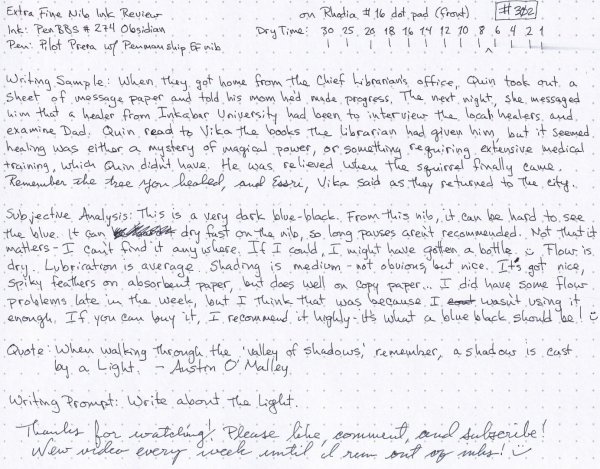 Extra Fine Nib Ink Review on Rhodia #16 dot pad (front) #302
Ink: PenBBS #274 Obsidian Dry Time: 30 25 20 18 16 14 12 10 8 6 4 2 1
Pen: Pilot Prera w/ Penmanship EF nib
Writing Sample: When they got home from the Chief Librarian's office, Quin took out a
sheet of message paper and told his mom he'd made progress. The next night, she messaged
him that a healer from Inkabar University had been to interview the local healers and
examine Dad. Quin read to Vika the books the librarian had given him, but it seemed
healing was either a mystery of magical power, or something requiring extensive medical
training, which Quin didn't have. He was relieved when the squirrel finally came.
Remember the tree you healed, and Essri, Vika said as they returned to the city.
Subjective Analysis: This is a very dark blue-black. From this nib, it can be hard to see
the blue. It can dry fast on the nib, so long pauses aren't recommended. Not that it
matters - I can't find it anywhere. If I could, I might have gotten a bottle. Flow is
dry. Lubrication is average. Shading is medium - not obvious, but nice. It's got nice,
spiky feathers on absorbent paper, but does well on copy paper... I did have some flow
problems late in the week, but I think that was because I wasn't using it
enough. If you can buy it, I recommend it highly - it's what a blue black should be!
Quote: When walking through the 'valley of shadows,' remember, a shadow is cast
by a Light. - Austin O'Malley
Writing Prompt: Write about the Light.
Thanks for watching! Please like, comment, and subscribe!
New video every week until I run out of inks!